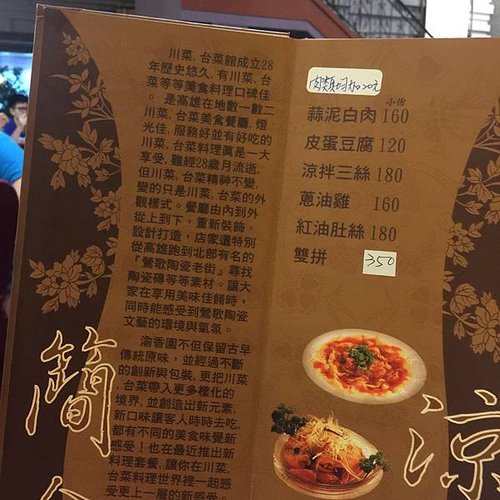 川菜,台菜館成立28
年歷史悠久,有川菜,台
菜等等美食料理口碑佳
,是高雄在地數一數二
川菜,台菜美食餐廳,燈
光佳,服務好並有好吃的
川菜,台菜料理眞是一大
享受,雖經28歲月流逝,
但川菜,台菜精神不變,
變的只是川菜,台菜的外
觀樣式。餐廳由內到外
從上到下,重新裝飾,
設計打造,店家還特別
從高雄跑到北部有名的
『鶯歌陶瓷老街』尋找
陶瓷磚等等素材。讓大
家在享用美味佳餚時,
同時能感受到鶯歌陶瓷
文藝的環境與氣氛。
渝香園不但保留古早
傳統原味,並經過不斷
的創新與包裝,更把川菜
,台菜帶入更多樣化的
境界,並創造出新元素,
新口味讓客人時時去吃,
都有不同的美食味覺新
感受!也在最近推出新
料理套餐,讓你在川菜,
台菜料理世界裡一起感
受更上一層的新感受。
簡
肉類時加20元
小份
蒜泥白肉 160
皮蛋豆腐 120
涼拌三絲 180
蔥油雞 160
紅油肚絲 180
雙拼 350
涼